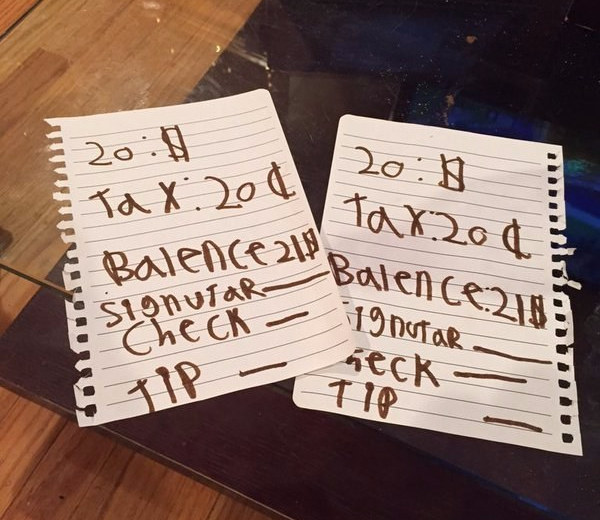 20:$
Tax:20¢
Balence 21$
signutar
Check
TIP
20:$
Tax:20¢
Balence:21$
ignutar
heck
TIP